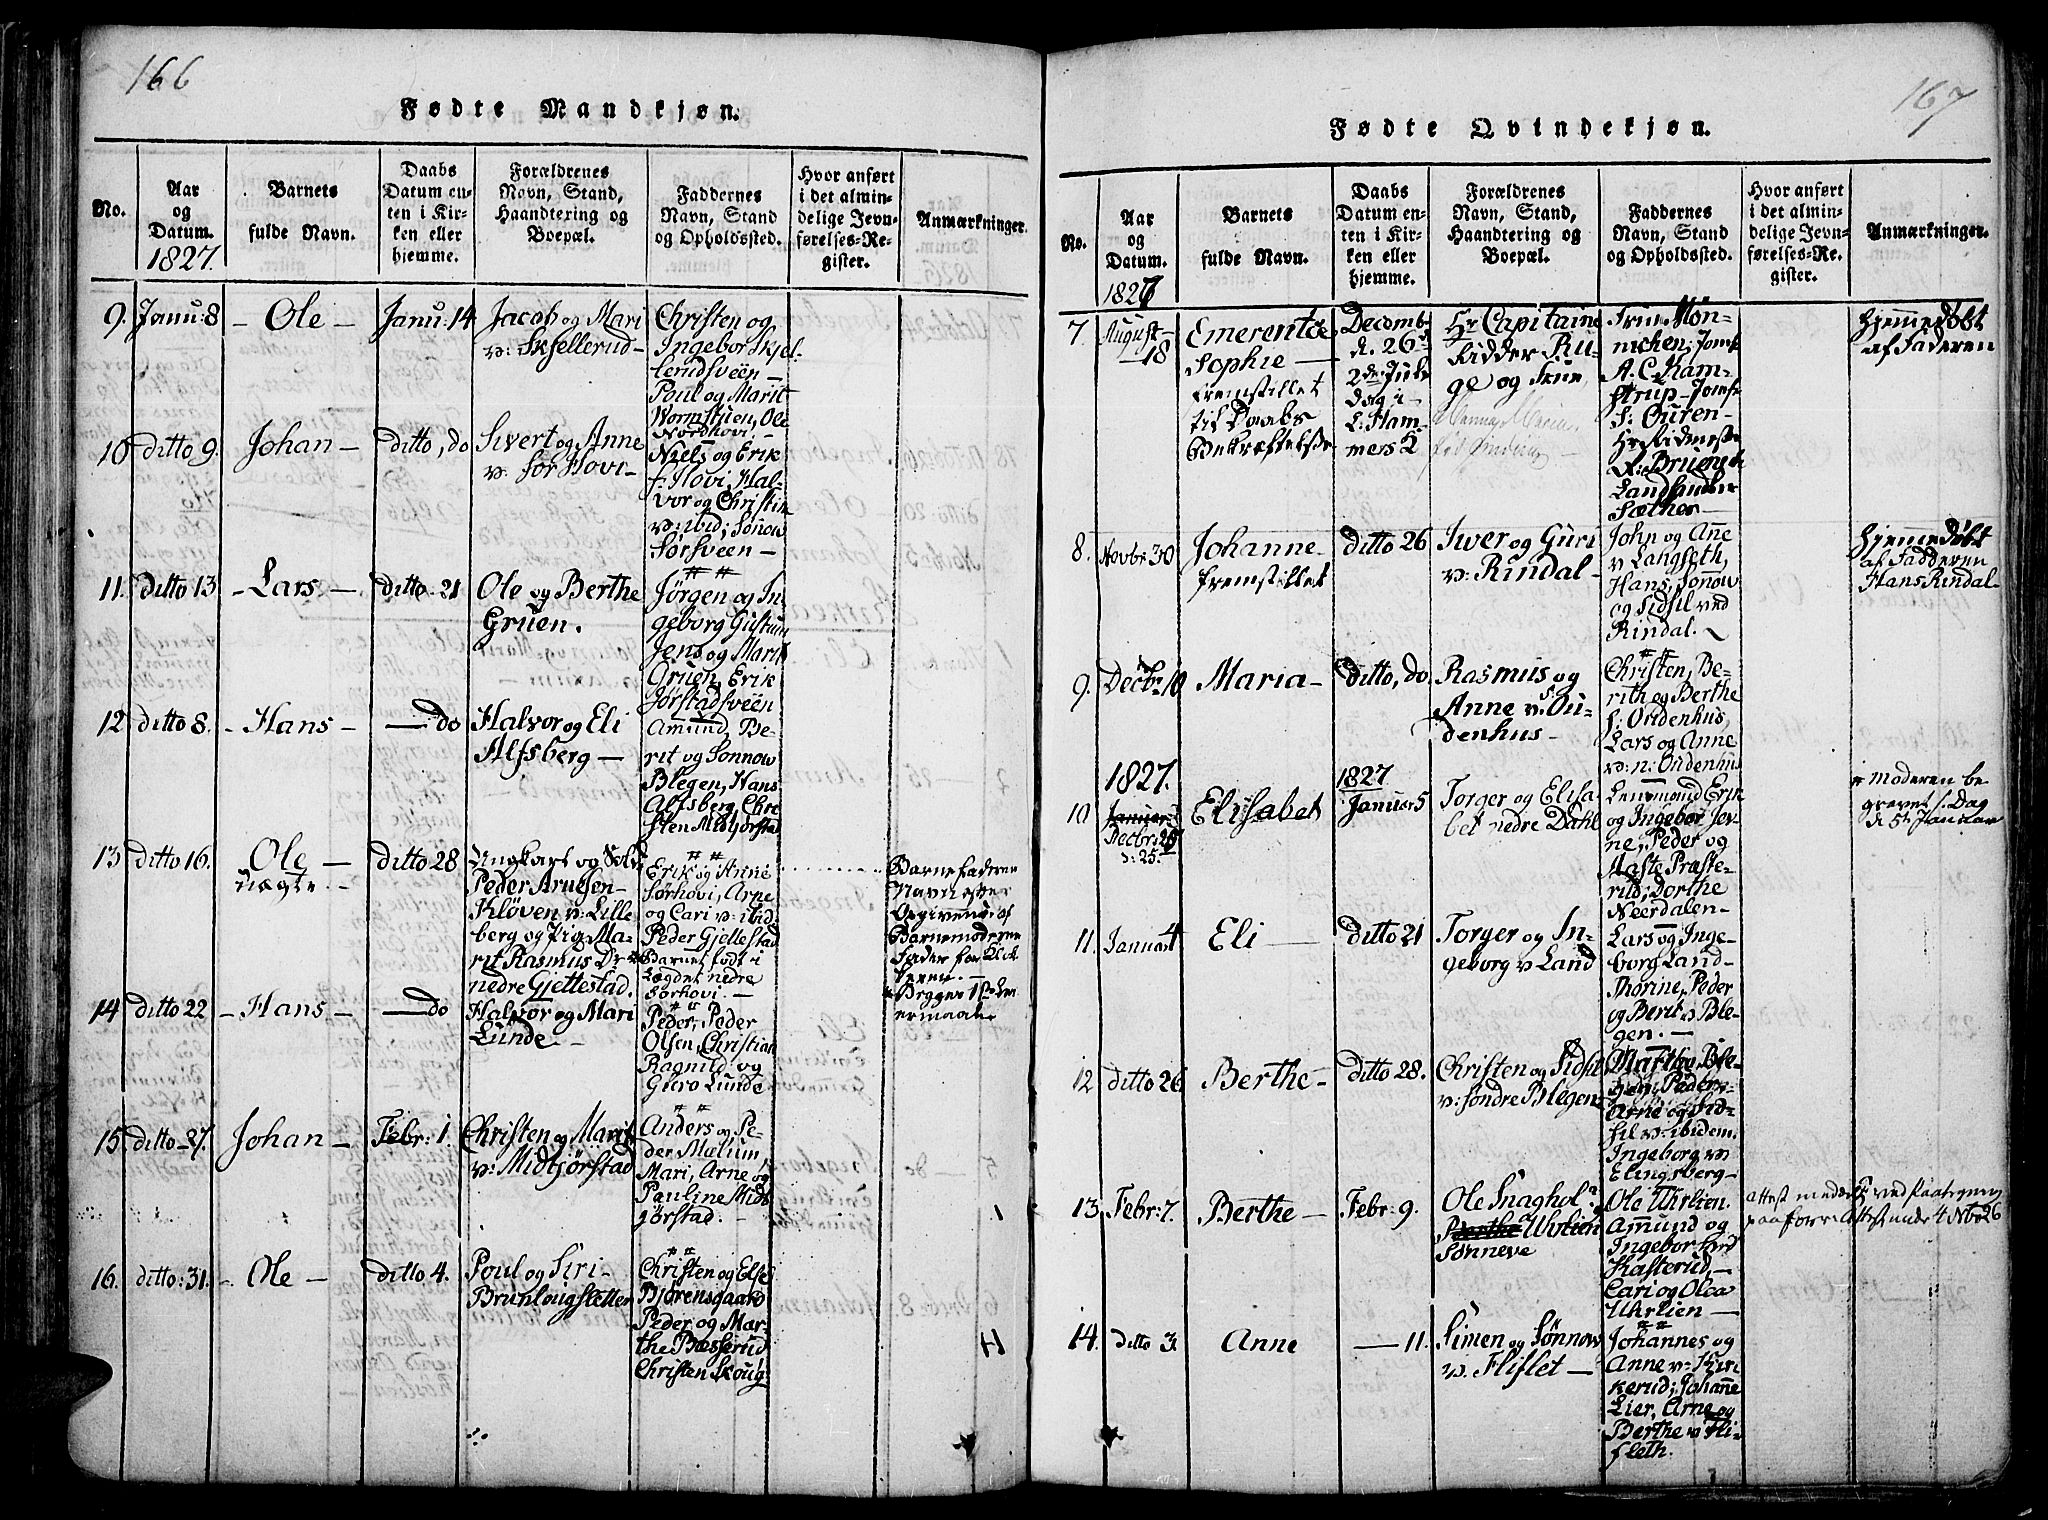 166
Fødte Mandkjøn.
No.
Aar
og
Datum.
1827.
Barnets
fulde Navn.
Daabs
Datum en-
ten i Kir-
ken eller
hjemme.
Forældrenes
Navn, Stand,
Haandtering og
Boepæl.
Faddernes
Navn, Stand
og Opholdssted.
Hvor anført
i det almin-
delige Jevn-
førelses-Re-
gister.
Anmærkninger.
9. Janu: 8
- Ole -
Janu: 14
Jacob og Mari
v: Skjellerud -
Christen og
Ingebor Skjel-
lerudsvéen -
Poul og Marit
Wormstuen, Ole
Nordhovi, -
10 ditto 9.
Johan -
ditto, do
Sivert og Anne
v: Sør Hovi -
Niels og Erik
s. Hovi, Hal-
vor og Christin
v: ibid; Sønow
Sørsveen -
11. ditto 13
- Lars -
ditto 21
Ole og Berthe
Gruen.
Jørgen og In-
geborg Gustum
Jens og Marit
Gruen, Erik
Jørstadsvéen
12 ditto 8.
- Hans -
- do
Halvor og Eli
Alfsberg -
Amund, Be-
rit og Sonnow
Blegen, Hans
Alfsberg, Chri
sten Midtjørstad
13 ditto 16.
Ole -
uægte. -
ditto 28
Ungkarl og
Peder Arnesen
Kløven v: Lille
berg og Pig. Ma-
rit Rasmus D:
nedre Gjettestad.
Erik og Anne
Sørhovi, Arne
og Cari v: ibid.
Peder Gjettestad
Barnet født i
Lægdet nedre
Sorhovi. -
Barnefaderens
Navn efter
Opgivende af
Barnemoderens
Fader for
14 ditto 22
- Hans -
- do
Halvor og Mari
Lunde -
Peder, Peder
Olsen, Christian
Ragnild og
Guro Lunde
15 ditto - 27.
Johan -
Febr: 1.
Christen og Marit
v: Midtjørstad
Anders og Pe-
der Mælum,
Mari, Arne og
Pauline Midt
jørstad. -
16. ditto: 31.
- Ole -
ditto 4.
Poul og Siri -
Brunlougsletten
Christen og Else
Bjørensgaard
Peder og Mar-
the Bæsserud
Christen Skoug
H
167
Fødte Qvindekjøn.
No.
Aar
og
Datum.
1826
Barnets
fulde Navn.
Daabs
Datum en-
ten i Kir-
ken eller
hjemme.
Forældrenes
Navn, Stand,
Haandtering og
Boepæl.
Faddernes
Navn, Stand
og Opholdssted.
Hvor anført
i det almin-
delige Jevn-
førelses-Re-
gister.
Anmærkninger.
7 August
18
Emerentse
Sophie -
fremstillet
til Daabs
Bekræftelse
Decemb:
d. 26
2den Jule
dag i
L: Ham-
mers 2
Hr Capitaine
Ridder Ru-
ge og Frue,
Frue Mon-
nichen, Jomf:
A. C. Kam-
strup - Jomf:
S: Ouren -
Sæther -
Hjemmedøbt
af Faderen
8. Novbr: 30
Johanne
fremstillet
ditto 26
Iwer og Guri
v: Rindal -
John og Ane
v Langseth,
Hans, Sønow
og Sidsil ved
Rindal. -
Hjemmedøbt
af Fadderen
Hans Rindal
9. Decbr: 10
Maria -
ditto, do
Rasmus og
Anne v: Ou-
denhus -
Christen, Be-
rith og Berthe
s: Oudenhus,
Lars og Anne
v: n: Oudenhus
10
1827.
Januar
Decbr: 25
d: 25.
Elisabet
1827
Januar 5
Torger og Elisa-
bet nedre Dahl
Lensmand Erik
og Ingebor Jev-
ne, Peder og
Maste Præste-
rud; Dorthe
Neerdalen -
Moderen be-
gravet s. Dag
d: 5te Januar
11. Januar 4
Eli -
ditto 21
Torger og In-
geborg v Land
Lars og Inge-
borg Land -
Thorine, Peder
og Berit v Ble-
gen. -
12 ditto 26
Berthe -
ditto 28.
Christen og Sidsil
v: Søndre Blegen
Marthe Ble-
gen, Peder,
Arne og Sid-
sil v: ibidem.
Ingeborg v
Elingsberg -
13. Febr: 7.
Berthe -
Febr: 9.
Ole Snaghol
Uhrlien
Sønneve
Ole Uhrlien.
Amund og
Ingebor
Kasterud, -
Cari og Olea
Uhrlien -
14. ditto 3.
Anne
- 11.
Simen og Sønnow
v: Flislet -
Johannes og
Anne v: Kir-
kerud; Johanne
Lier, Arne og
Berthe v Fli-
sleth.